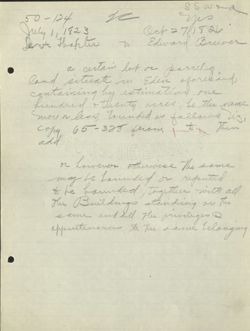 SS Ward
50-124 yes
July 1, 1923 Oct 27/1821
to Edward Brewer
a certain lot or parcel of
land situate in Eden aforesaid,
containing by estimation one
hundred & twenty acres, be the same
more or less, bounded as follows, viz,
copy 65-328 from to then
add
or however otherwise the same
may be bounded or reputed
to be bounded, together with all
the Buildings standing on the
same and all the privileges &
appurtenances to the same belonging